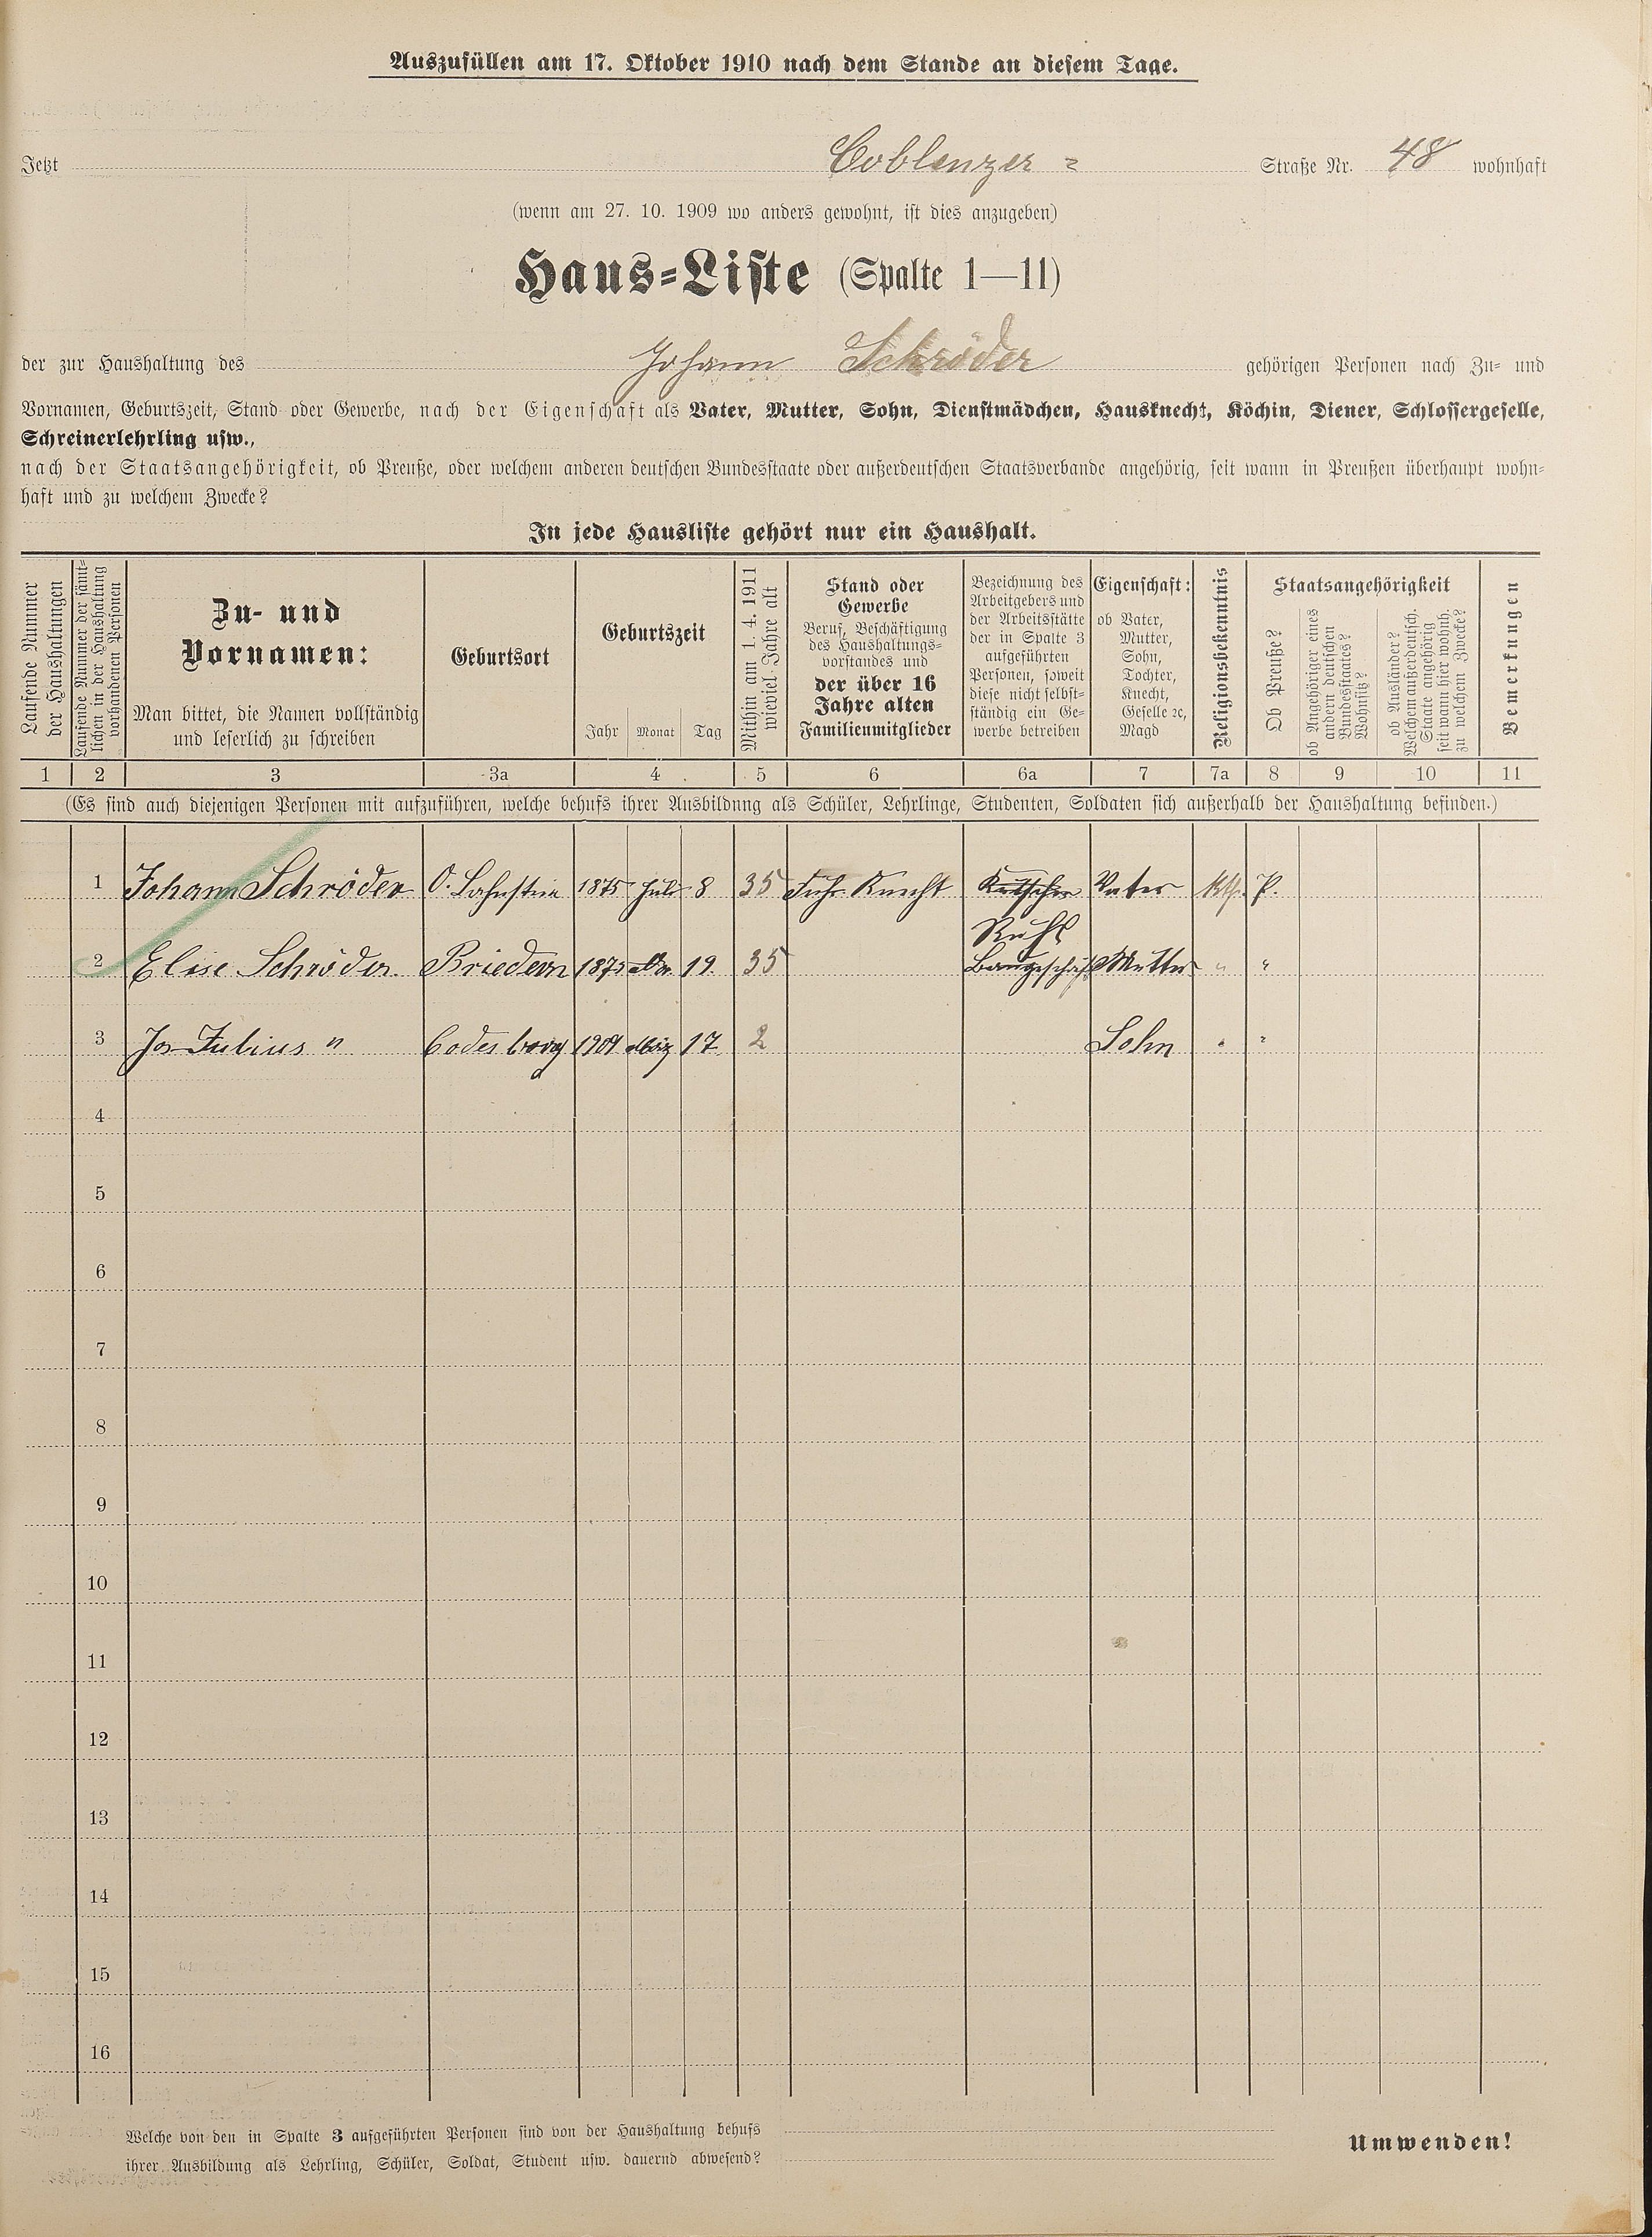 Auszufüllen am 17. Oktober 1910 nach dem Stande an diesem Tage.
Jetzt Coblenzer = Straße Nr. 48 wohnhaft
(wenn am 27. 10. 1909 wo anders gewohnt, ist dies anzugeben)
Haus=Liste (Spalte 1—11)
der zur Haushaltung des Johann Schröder gehörigen Personen nach Zu= und
Vornamen, Geburtszeit, Stand oder Gewerbe, nach der Eigenschaft als Vater, Mutter, Sohn, Dienstmädchen, Hausknecht, Köchin, Diener, Schlossergeselle,
Schreinerlehrling usw.,
nach der Staatsangehörigkeit, ob Preuße, oder welchem anderen deutschen Bundesstaate oder außerdeutschen Staatsverbande angehörig, seit wann in Preußen überhaupt wohn=
haft und zu welchem Zwecke?
In jede Hausliste gehört nur ein Haushalt.
Laufende Nummer
der Haushaltungen
Laufende Nummer der sämt=
lichen in der Haushaltung
vorhandenen Personen
Zu- und
Vornamen:
Man bittet, die Namen vollständig
und leserlich zu schreiben
Geburtsort
Geburtszeit
Jahr Monat Tag
Mithin am 1. 4. 1911
wieviel Jahre alt
Stand oder
Gewerbe
Beruf, Beschäftigung
des Haushaltungs=
vorstandes und
der über 16
Jahre alten
Familienmitglieder
Bezeichnung des
Arbeitgebers und
der Arbeitsstätte
der in Spalte 3
aufgeführten
Personen, soweit
diese nicht selbst=
ständig ein Ge=
werbe betreiben
Eigenschaft:
ob Vater,
Mutter,
Sohn,
Tochter,
Knecht,
Geselle ꝛc,
Magd
Religionsbekenntnis
Staatsangehörigkeit
Ob Preuße?
ob Angehöriger eines
andern deutschen
Bundesstaates?
Wohnsitz?
ob Ausländer?
Welchem außerdeutsch.
Staate angehörig
seit wann hier wohnh.
zu welchem Zwecke?
Bemerkungen
1 2 3 3a 4 5 6 6a 7 7a 8 9 10 11
(Es sind auch diejenigen Personen mit aufzuführen, welche behufs ihrer Ausbildung als Schüler, Lehrlinge, Studenten, Soldaten sich außerhalb der Haushaltung befinden.)
1 Johann Schröder O. Lahnstein 1875 Juli 8 35 Fuhr Knecht Kutscher Vater kth. P.
Ruhl
2 Elise Schröder Briedern 1875 19. 35 Baugeschäft Mutter " "
3 Jos Julius " Godesberg 1909 März 17 2 Sohn " "
4
5
6
7
8
9
10
11
12
13
14
15
16
Welche von den in Spalte 3 aufgeführten Personen sind von der Haushaltung behufs
ihrer Ausbildung als Lehrling, Schüler, Soldat, Student usw. dauernd abwesend?
Umwenden!